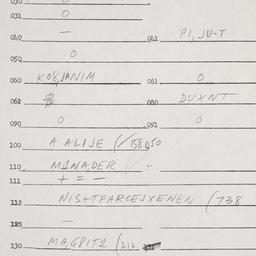 030 0
031 0
040 — 041 PI, JU-T
050 0
060 KO8JANIM 061 0
062 $ 080 DUXNT
090 0 091 0
100 A ALIJE (/158,050
110 M1NA,DER
111 + = —
112 NIS+TFARCEJXENEN (738
120 —
130 MA,GPITZ (212